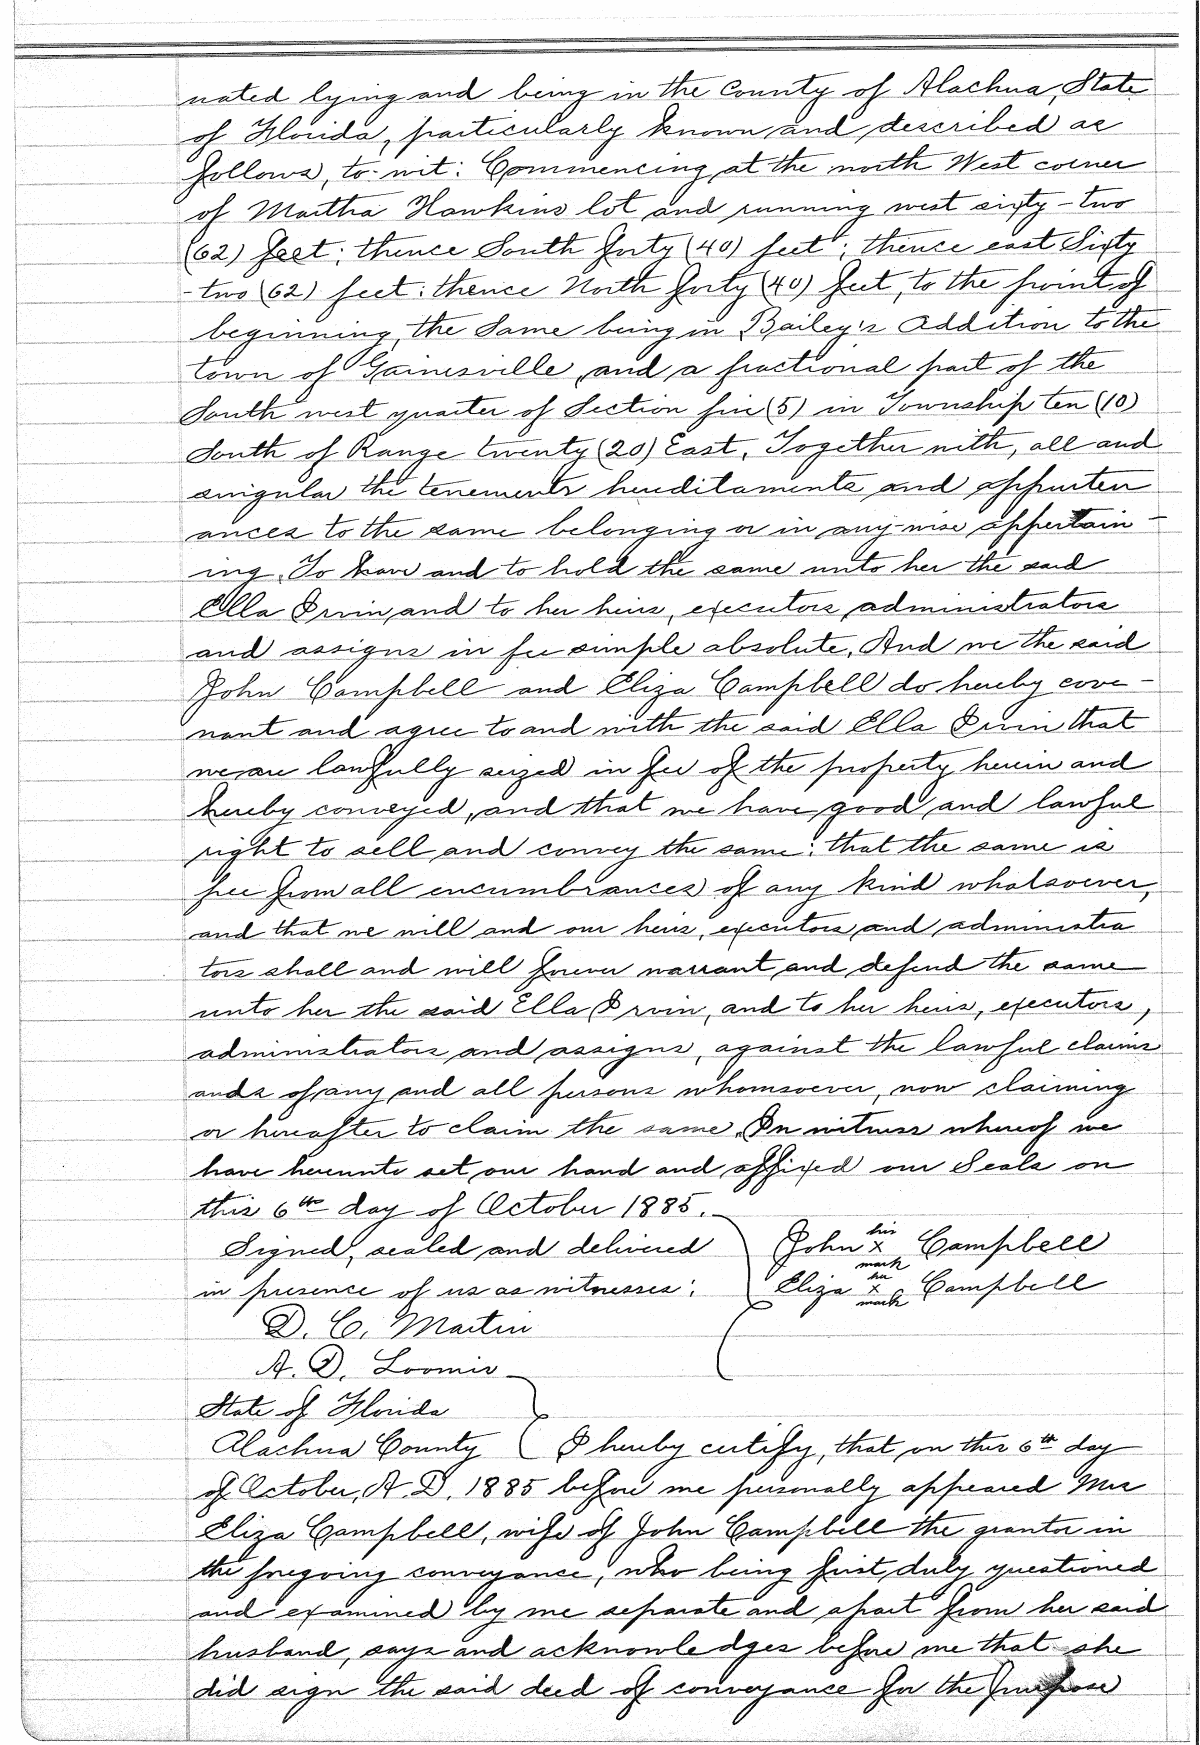 nated lying and being in the County of Alachua, State
of Florida, particularly known and described as
follows, to-wit: Commencing at the north West corner
of Martha Hawkins lot and running west sixty-two
(62) feet; thence South forty (40) feet; thence east Sixty
-two (62) feet; thence North forty (40) feet, to the point of
beginning, the Same being in Bailey's Addition to the
town of Gainesville, and a fractional part of the
South west quarter of Section five (5) in Township ten (10)
South of Range twenty (20) East, Together with, all and
singular the tenements hereditaments and appurten
ances to the same belonging or in any-wise appertain-
ing, To have and to hold the same unto her the said
Ella Irvin, and to her heirs, executors, administrators
and assigns in fee simple absolute, And we the said
John Campbell and Eliza Campbell do hereby cove-
nant and agree to and with the said Ella Irvin that
we are lawfully seized in fee of the property herein and
hereby conveyed, and that we have good and lawful
right to sell and convey the same; that the same is
free from all encumbrances of any kind whatsoever,
and that we will and our heirs, executors, and administra
tors shall and will forever warrant, and defend the same
unto her the said Ella Irvin, and to her heirs, executors,
administrators, and assigns, against the lawful claims
ands of any and all persons whomsoever, now claiming
or hereafter to claim the same. In witness whereof we
have hereunto set our hand and affixed our Seals on
this 6th day of October 1885.
Signed, sealed and delivered John his x mark Campbell
in presence of us as witnesses; Eliza her x mark Campbell
D. C. Martin
A. D. Loomis
State of Florida
Alachua County I hereby certify, that on this 6th day
of October, A.D. 1885 before me personally appeared Mrs
Eliza Campbell, wife of John Campbell the grantor in
the foregoing conveyance, who being first, duly questioned
and examined by me separate and apart from her said
husband, says and acknowledges before me that she
did sign the said deed of conveyance for the purpose